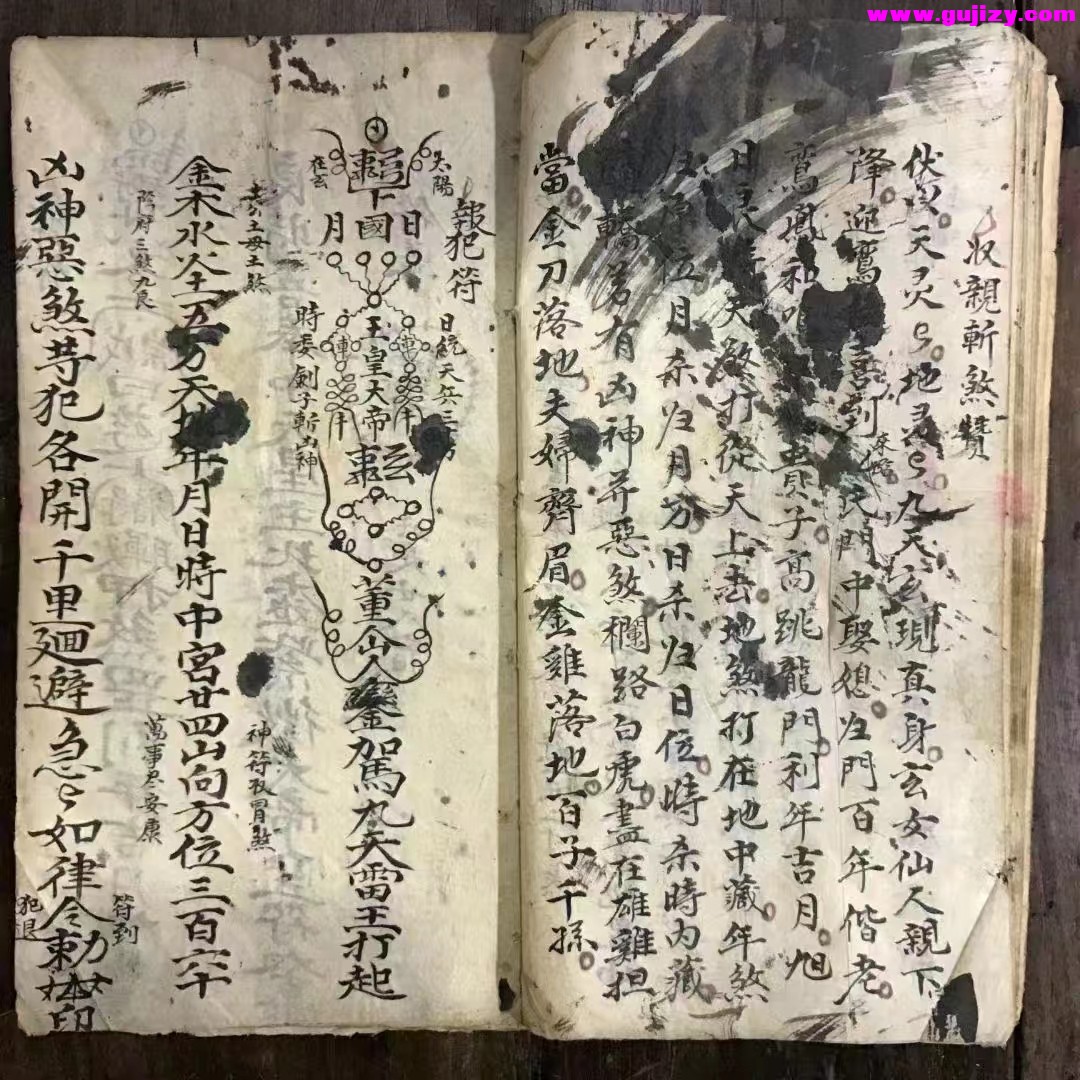 www.gujizy.com
收親斬煞贊
伏以天灵々地灵々九天玄現真身玄女仙人親下
降迎鸞 喜到 氏門中娶媳归門百年偕老
來臨
鸞鳳和鳴 貴子高跳龍門利年吉月旭
日良 天煞打從天上去地煞打在地中藏年煞
归年位月杀归月分日杀归日位時杀時内藏
轎若有凶神并惡煞欄路白虎盡在雄雞担
當金刀落地夫婦齊眉金雞落地百子千孫
報犯符
太陽
在玄
下國
日
月
日統天兵三
玉皇大帝
時委劍子斬凶神
董仙人 金駕九天雷王打起
煞
神符收冒煞
金木水火土五方天地年月日時中宮廿四山向方位三百六十
陰府三煞九良
萬事尽安康
凶神惡煞苻犯各開千里廻避急々如律令勅
印
符到
犯退